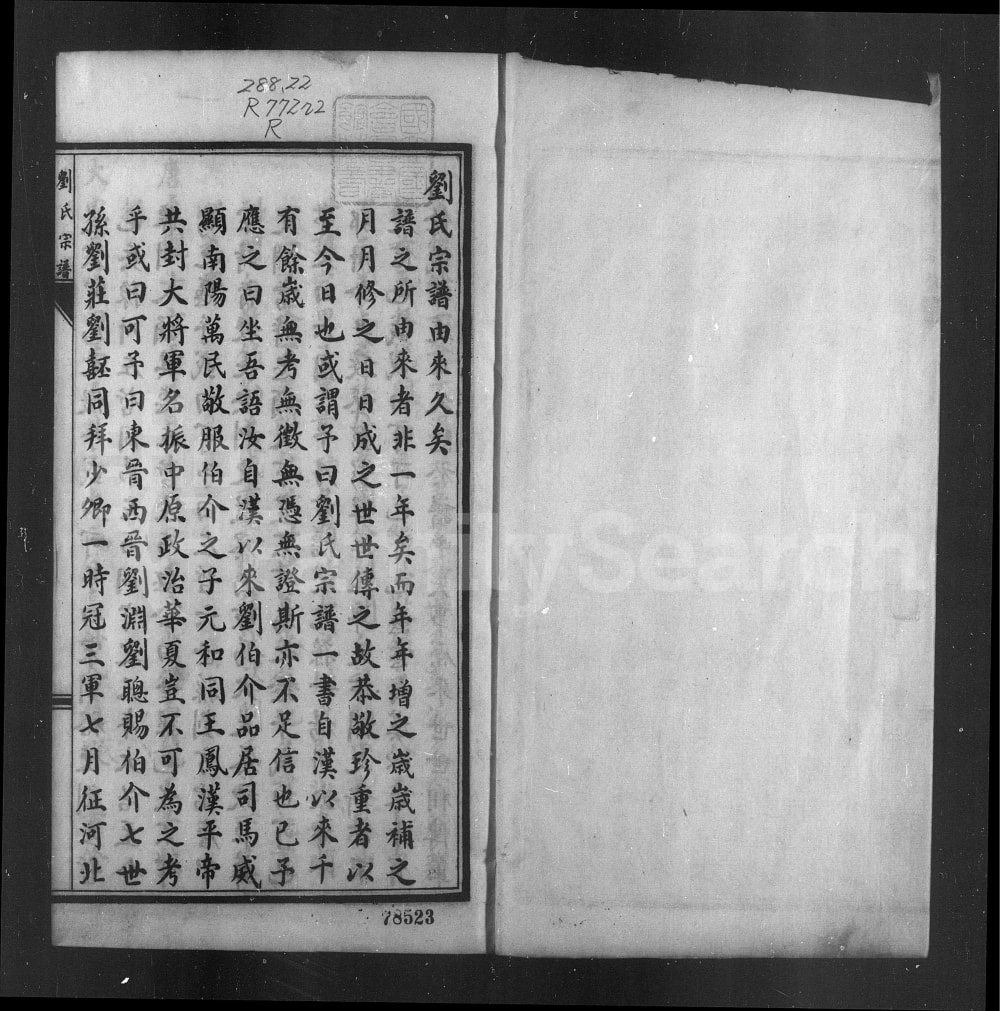 288.22
R772n2
R
劉氏宗譜由來久矣
譜之所由來者非一年矣而年年增之歲歲補之
月月修之日日成之世世傳之故恭敬珍重者以
至今日也或謂予曰劉氏宗譜一書自漢以來千
有餘歲無考無徵無憑無證斯亦不足信也已予
應之曰坐吾語汝自漢以來劉伯介品居司馬威
顯南陽萬民敬服伯介之子元和同王鳳漢平帝
共封大將軍名振中原政治華夏豈不可為之考
乎或曰可予曰東晉西晉劉淵劉聰賜伯介七世
孫劉莊劉同拜少卿一時冠三軍七月征河北
劉氏宗譜
78523